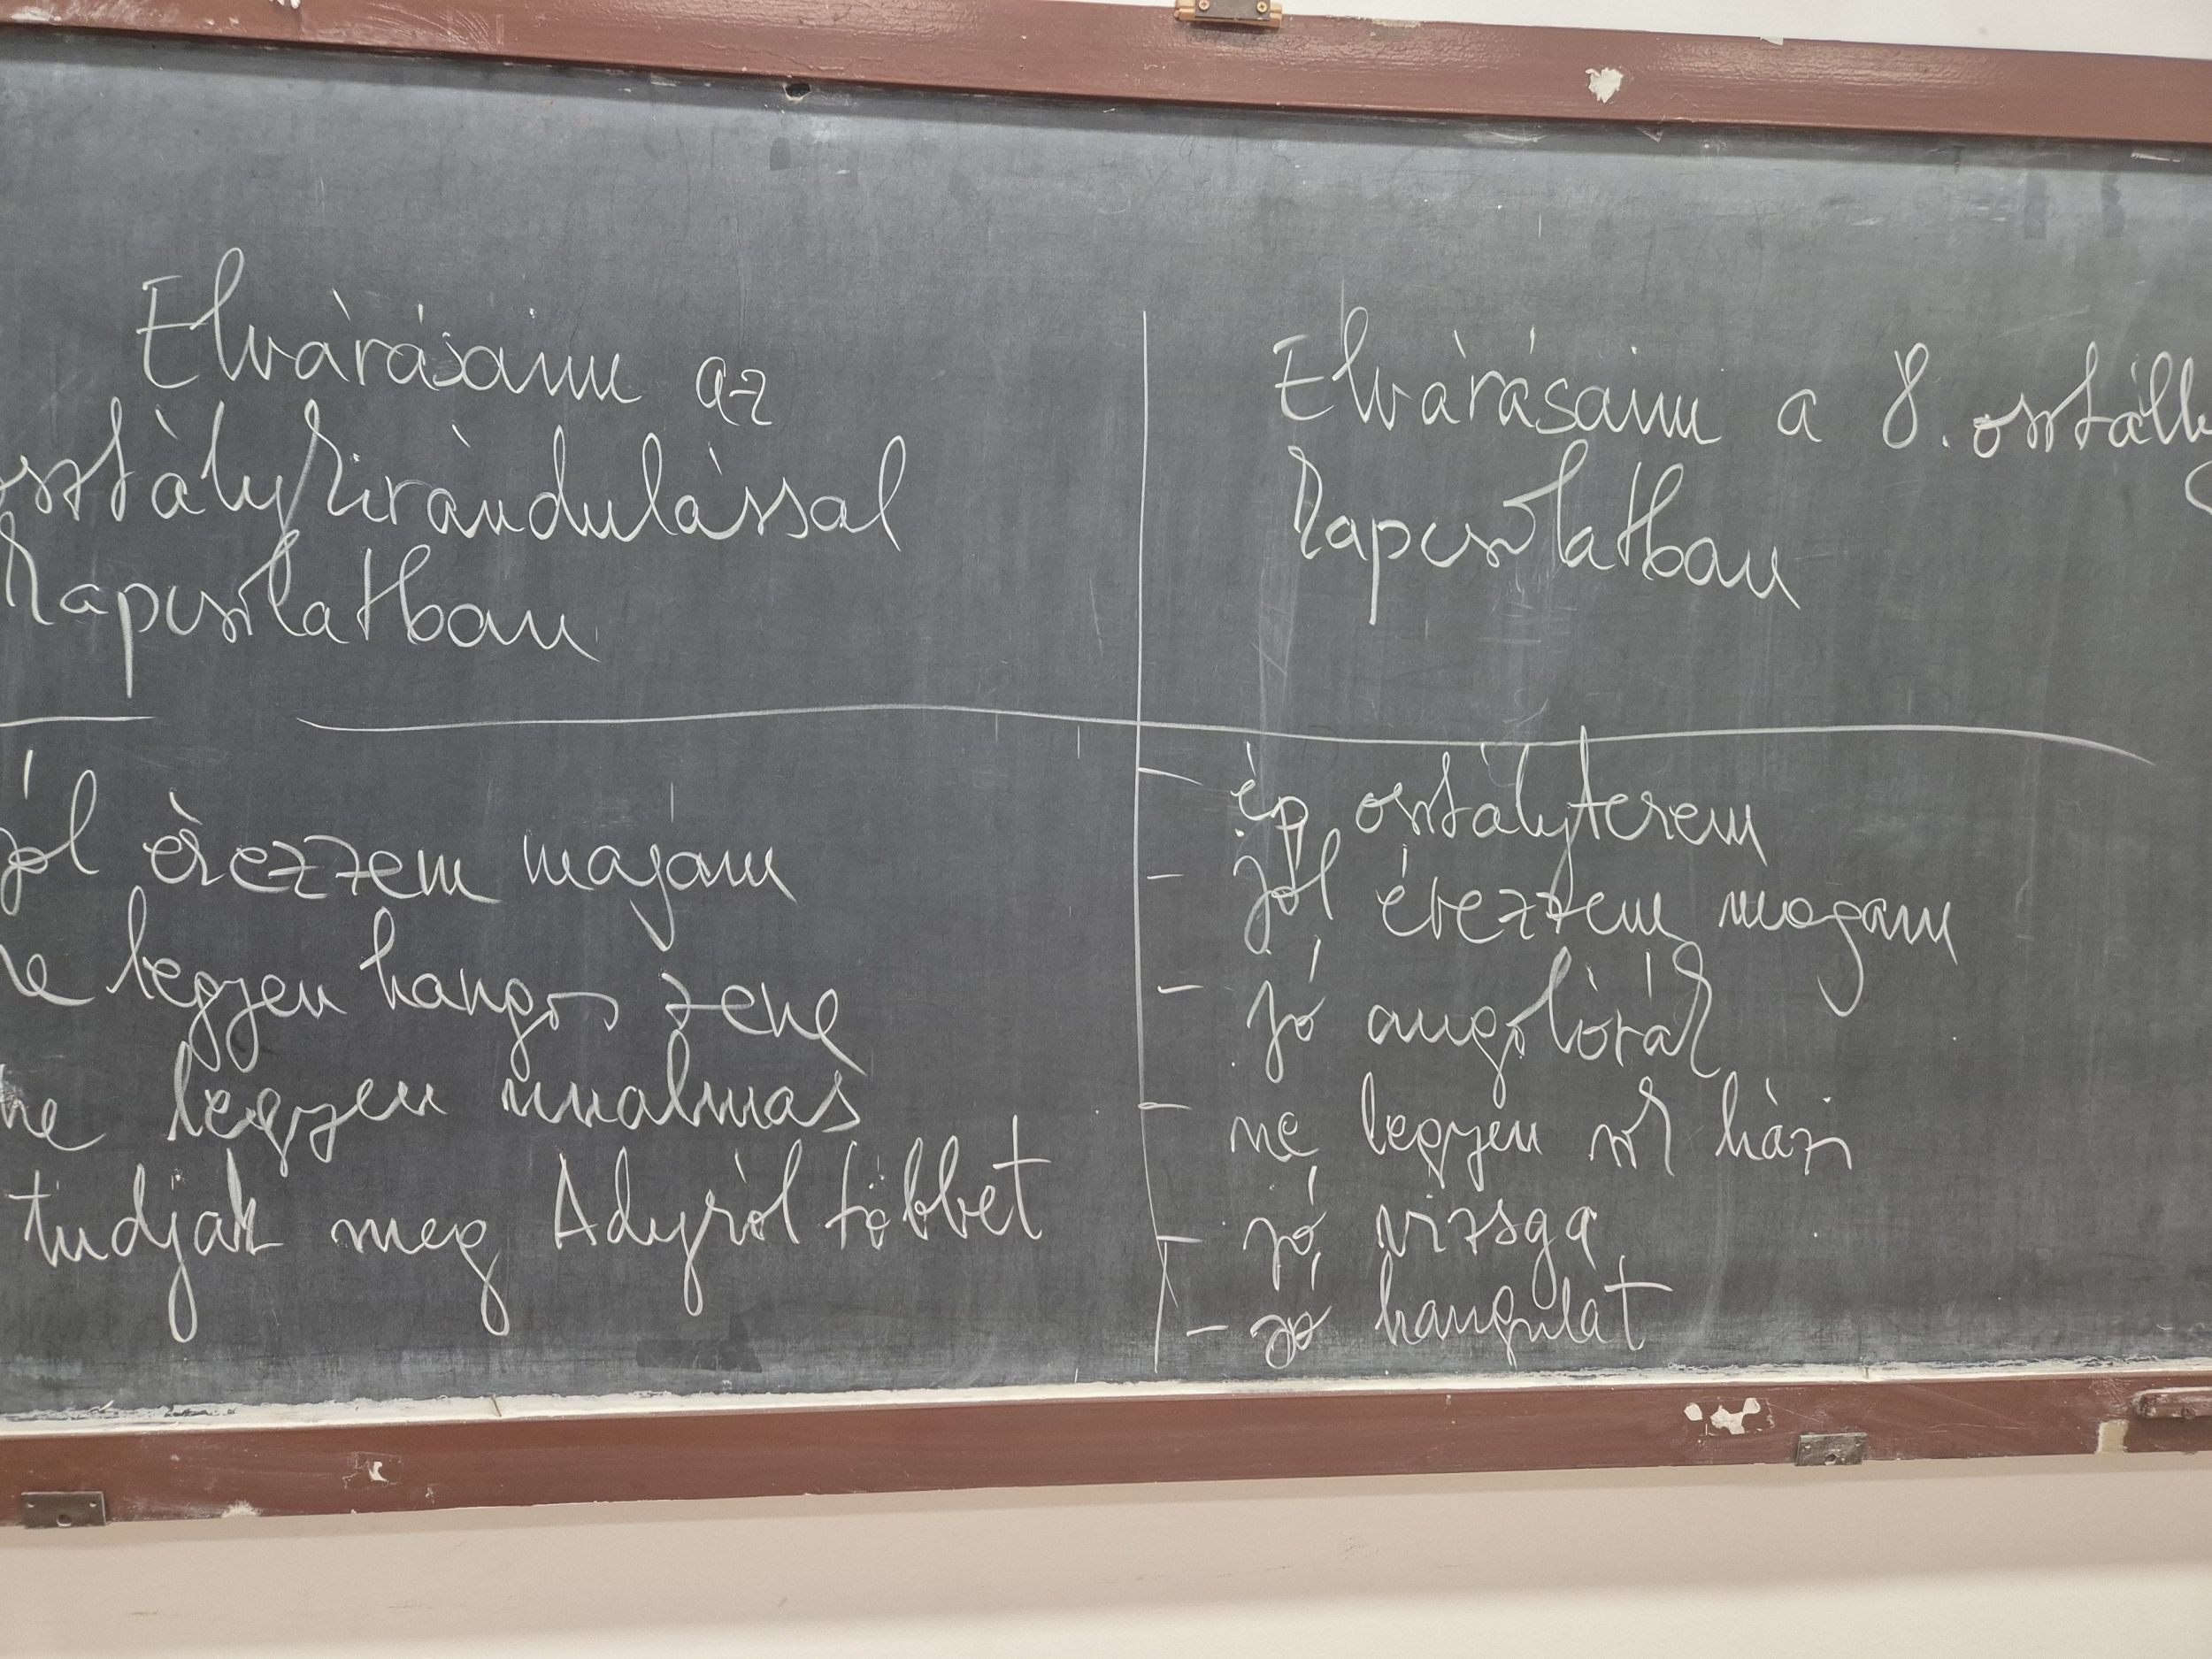 Elvárásaim az
osztálykirándulással
kapcsolatban
jól érezzem magam
ne legyen hangos zene
ne legyen unalmas
tudjak meg Adyról többet
Elvárásaim a 8. osztály
kapcsolatban
- ép osztályterem
- jól érezzem magam
- jó angolórák
- ne legyen sok házi
- jó vizsga
- jó hangulat